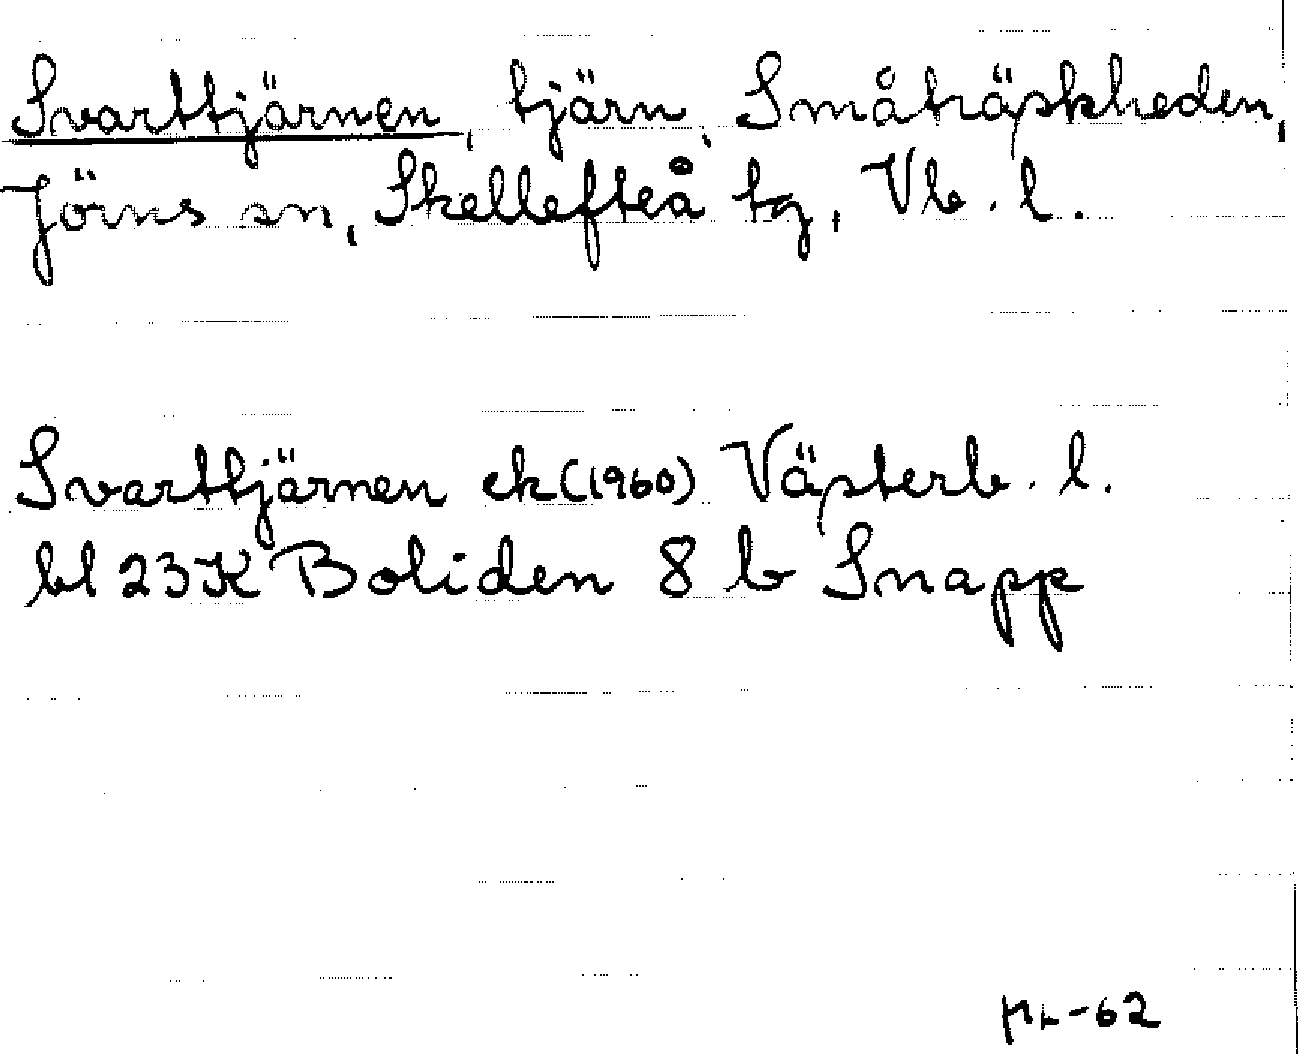 Svarttjärnen, tjärn, Småträskheden,
Jörns sn, Skellefteå tg, Vb. l.
Svarttjärnen ek (1960) Västerb. l.
bl 23K Boliden 8 b Snapp
-62